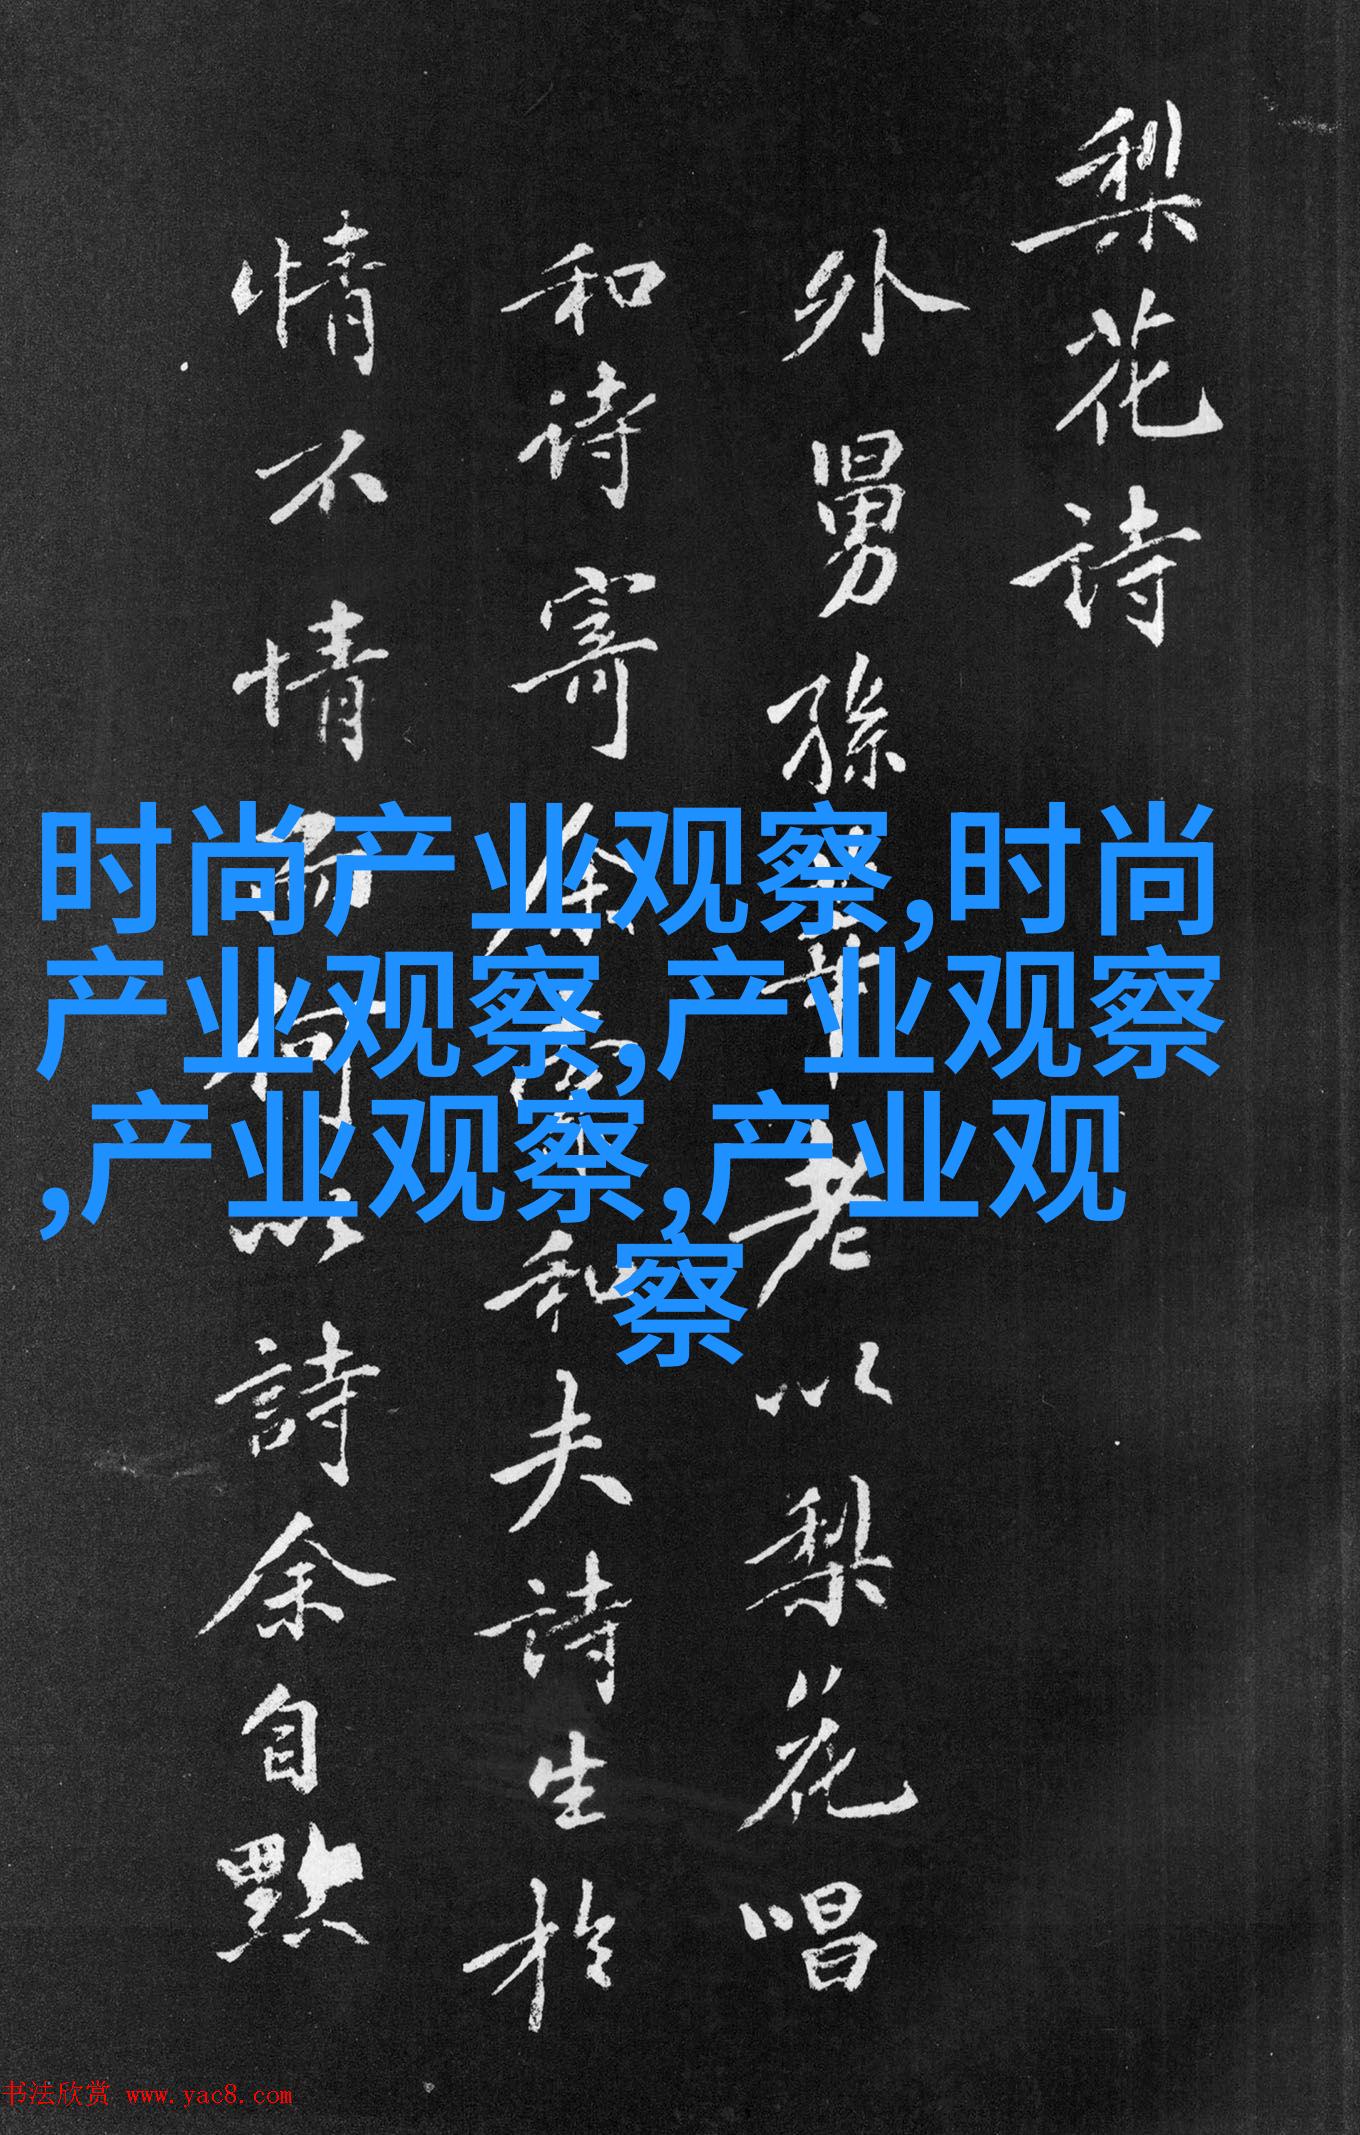 梨花诗
外舅孫莘老以梨花唱
和诗寄余余和夫詩生於
情不情而何以詩余自點
时尚产业观察,时尚
产业观察,产业观察
,产业观察,产业观
察
书法欣赏 www.yac8.com